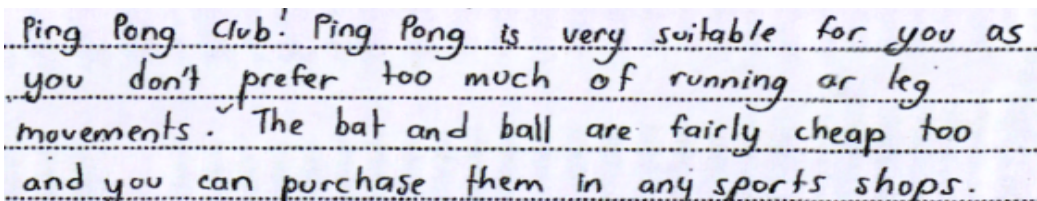 Ping Pong Club! Ping Pong is very suitable for you as
you don't prefer too much of running ar leg
movements. The bat and ball are fairly cheap too
and you can purchase them in any sports shops.